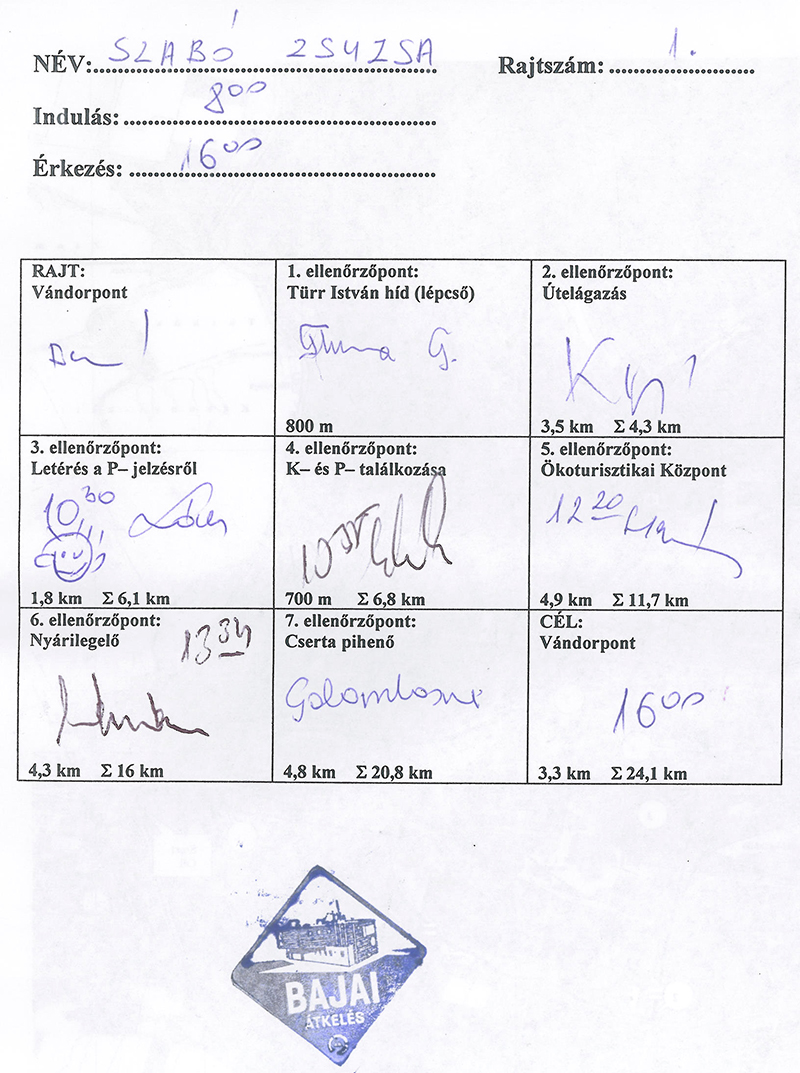 NÉV: SZABÓ ZSUZSA Rajtszám: 1.
Indulás: 8 00
Érkezés: 16 00
RAJT:
Vándorpont
1. ellenőrzőpont:
Türr István híd (lépcső)
800 m
2. ellenőrzőpont:
Útelágazás
3,5 km Σ 4,3 km
3. ellenőrzőpont:
Letérés a P– jelzésről
10 30
1,8 km Σ 6,1 km
4. ellenőrzőpont:
K– és P– találkozása
700 m Σ 6,8 km
5. ellenőrzőpont:
Ökoturisztikai Központ
12 20
4,9 km Σ 11,7 km
6. ellenőrzőpont:
Nyárilegelő
13 34
4,3 km Σ 16 km
7. ellenőrzőpont:
Cserta pihenő
4,8 km Σ 20,8 km
CÉL:
Vándorpont
16 00
3,3 km Σ 24,1 km
BAJAI
ÁTKELÉS